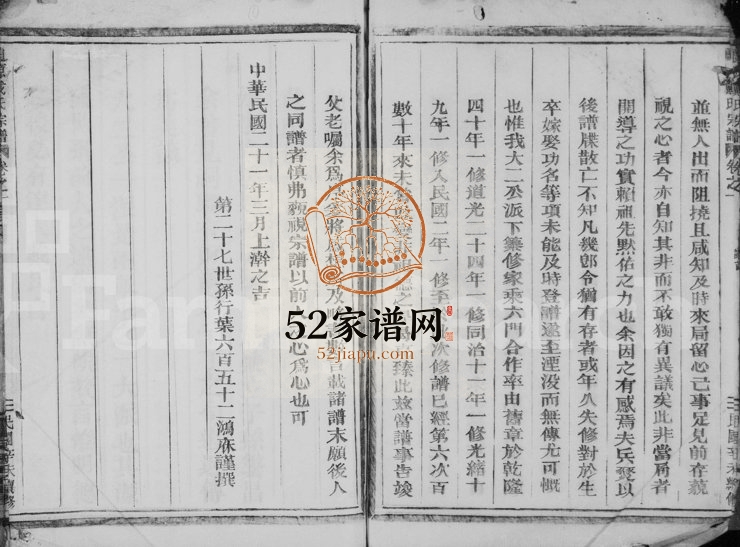 並無人出而阻撓且咸知及時來局留心己事足見前存藐
視之心者今亦自知其非而不敢獨有異議矣此非當局者
開導之功實賴祖先默佑之力也余因之有感焉夫兵燹以
後譜牒散亡不知凡幾卽令猶有存者或年久失修對於生
卒嫁娶功名等項未能及時登譜遂至湮没而無傳尤可慨
也惟我大二公派下纂修家乘六門合作率由舊章於乾隆
四十年一修道光二十四年一修同治十一年一修光緒十
九年一修入民國二年一修至 次修譜已經第六次百
數十年來未 之 臻此兹當譜事告竣
父老囑余爲 將 及 載諸譜末願後人
之同譜者慎弗藐視宗譜以前 心爲心也可
中華民國二十一年三月上澣之吉
第二十七世孫行葉六百五十二鴻庥謹撰
52家谱网
52jiapu.com